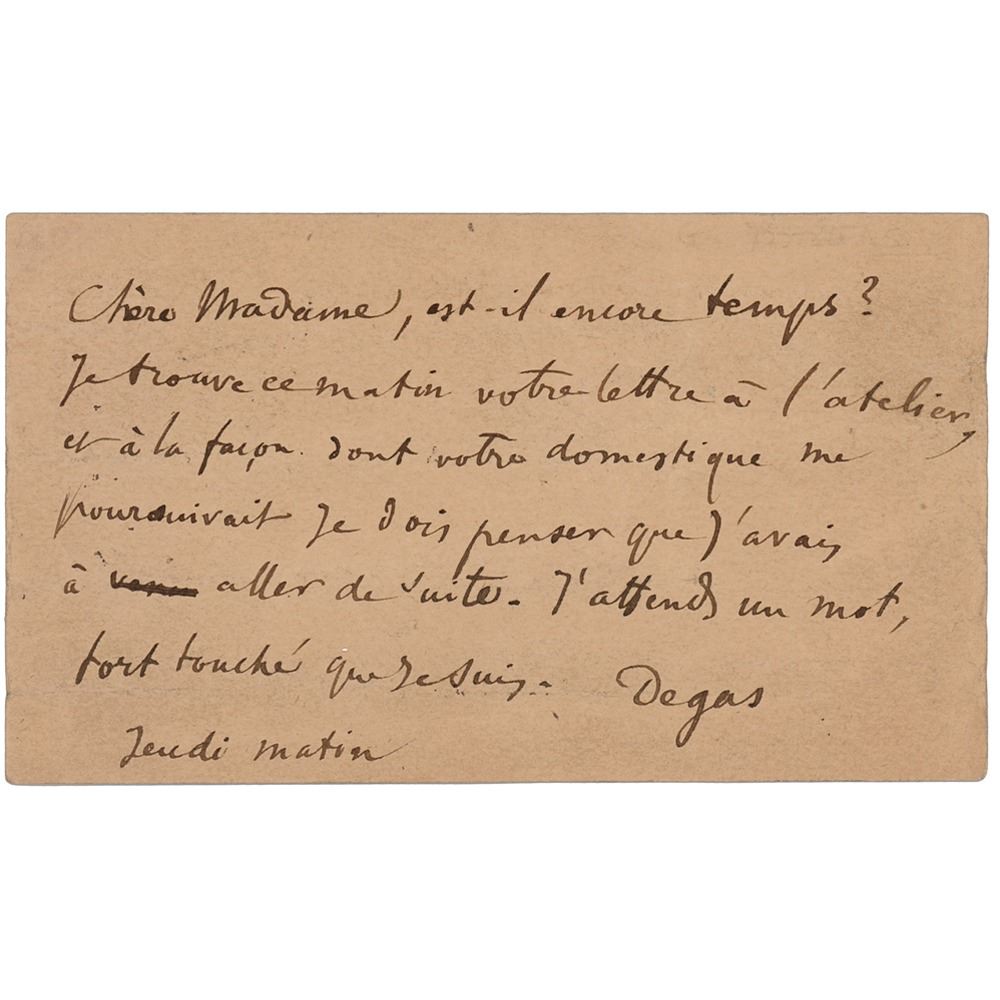 Chère Madame, est-il encore temps?
Je trouve ce matin votre lettre à l'atelier,
et à la façon dont votre domestique me
poursuivait je dois penser que j'avais
à aller de suite. J'attends un mot,
fort touché que je suis.
Degas
Jeudi matin